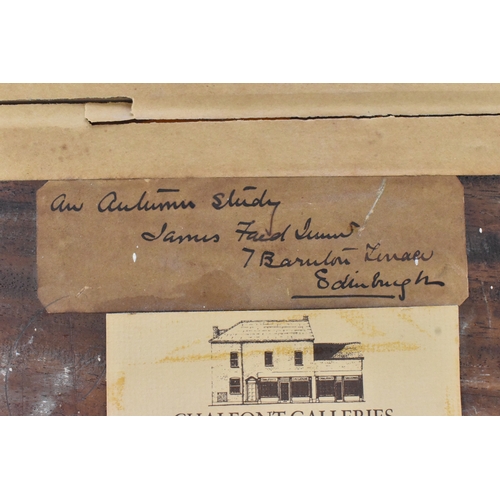 An Autumn Study
James Faed Junr
7 Barnton Terrace
Edinburgh
CHALFONT GALLERIES